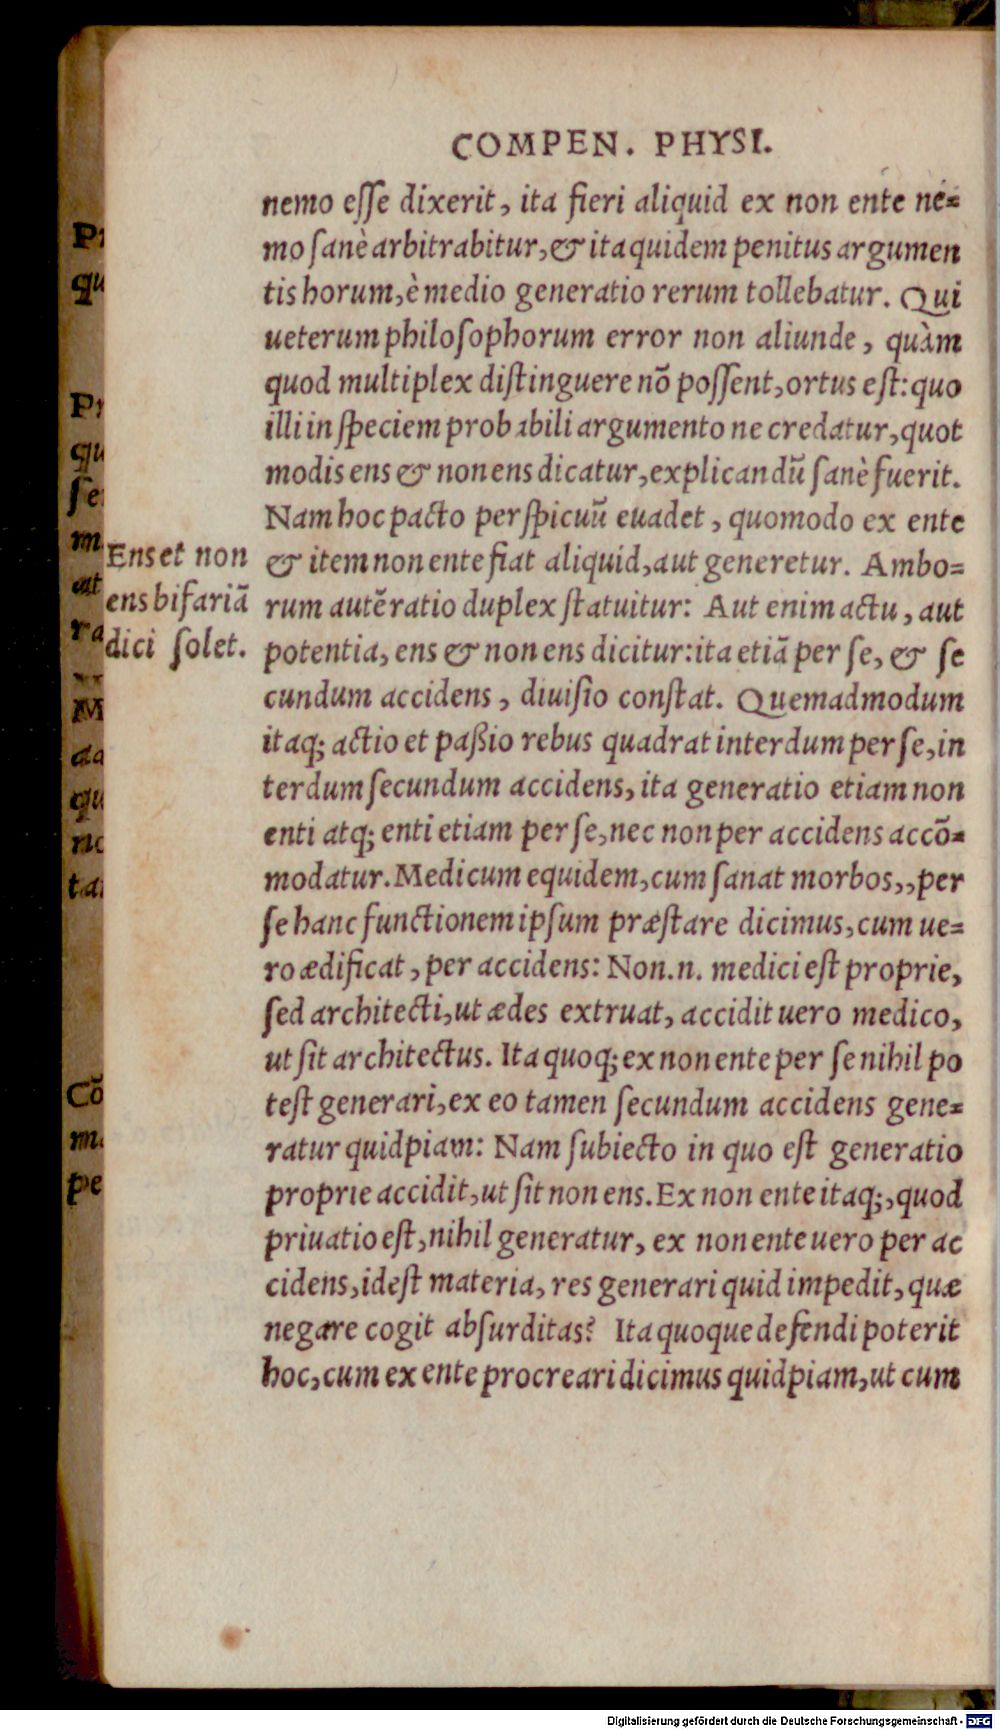 COMPEN. PHYSI.
nemo eſſe dixerit, ita fieri aliquid ex non ente ne=
mo ſanè arbitrabitur, & ita quidem penitus argumen
tis horum, è medio generatio rerum tollebatur. Qui
ueterum philoſophorum error non aliunde, quàm
quod multiplex diſtinguere nõ poſſent, ortus eſt: quo
illi in ſpeciem probabili argumento ne credatur, quot
modis ens & non ens dicatur, explicandũ ſanè fuerit.
Nam hoc pacto perſpicuũ euadet, quomodo ex ente
& item non ente fiat aliquid, aut generetur. Ambo=
rum autẽ ratio duplex ſtatuitur: Aut enim actu, aut
potentia, ens & non ens dicitur: ita etiã per ſe, & ſe
cundum accidens, diuiſio conſtat. Quemadmodum
itaq; actio et paßio rebus quadrat interdum per ſe, in
terdum ſecundum accidens, ita generatio etiam non
enti atq; enti etiam per ſe, nec non per accidens accõ=
modatur. Medicum equidem, cum ſanat morbos,, per
ſe hanc functionem ipſum præſtare dicimus, cum ue=
ro ædificat, per accidens: Non.n. medici eſt proprie,
ſed architecti, ut ædes extruat, accidit uero medico,
ut ſit architectus. Ita quoq; ex non ente per ſe nihil po
teſt generari, ex eo tamen ſecundum accidens gene=
ratur quidpiam: Nam ſubiecto in quo eſt generatio
proprie accidit, ut ſit non ens. Ex non ente itaq;, quod
priuatio eſt, nihil generatur, ex non ente uero per ac
cidens, ideſt materia, res generari quid impedit, quæ
negare cogit abſurditas? Ita quoque defendi poterit
hoc, cum ex ente procreari dicimus quidpiam, ut cum
Ens et non
ens bifariã
dici ſolet.
qu
qu
ra
M
qu
Cõ
pe
Digitalisierung gefördert durch die Deutsche Forschungsgemeinschaft - DFG